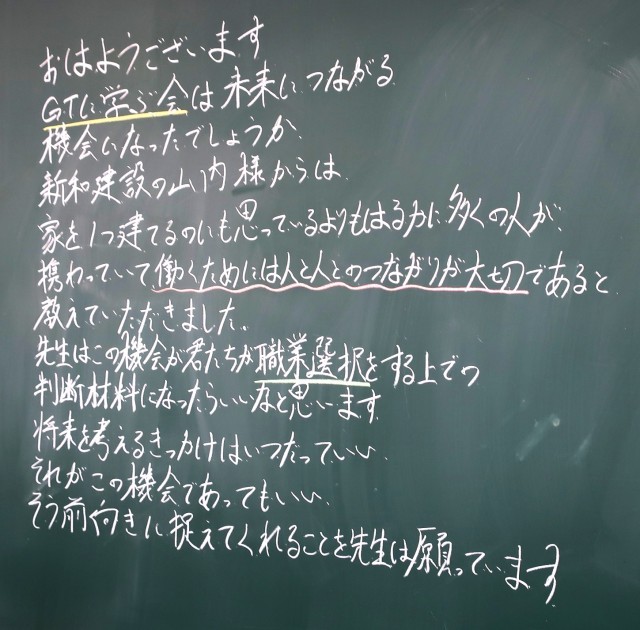 おはようございます
GTに学ぶ会は未来につながる
機会になったでしょうか
新和建設の山内様からは
家を1つ建てるのにも思っているよりもはるかに多くの人が、
携わっていて働くためには人と人とのつながりが大切であると
教えていただきました。
先生はこの機会が君たちが職業選択をする上での
判断材料になったらいいなと思います
将来を考えるきっかけはいつだっていい
それがこの機会であってもいい
そう前向きに捉えてくれることを先生は願っています